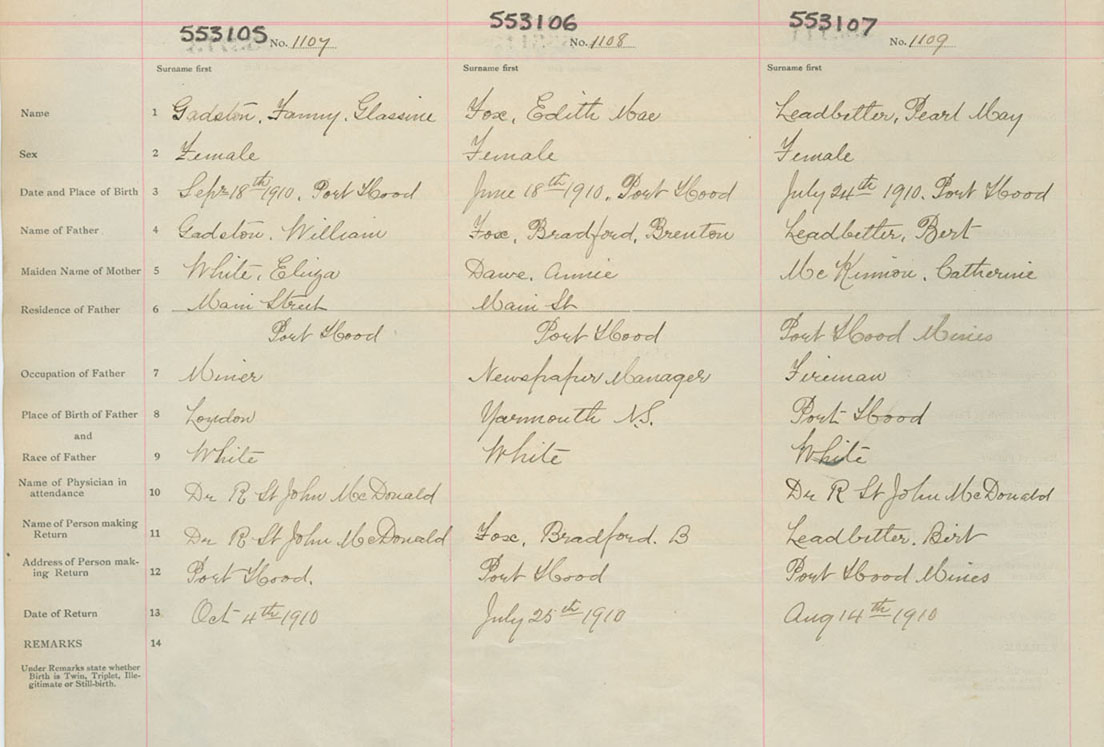 553105 No. 1107 553106 No. 1108 553107 No. 1109
Surname first Surname first Surname first
Name 1 Gadston, Fanny, Glassine Fox, Edith Mae Leadbetter, Pearl May
Sex 2 Female Female Female
Date and Place of Birth 3 Sept 18th 1910, Port Hood June 18th 1910, Port Hood July 24th 1910, Port Hood
Name of Father 4 Gadston, William Fox, Bradford, Brenton Leadbetter, Bert
Maiden Name of Mother 5 White, Eliza Dawe, Annie McKinnon, Catherine
Residence of Father 6 Main Street Main St
Port Hood Port Hood Port Hood Mines
Occupation of Father 7 Miner Newspaper Manager Fireman
Place of Birth of Father 8 London Yarmouth N.S. Port Hood
and
Race of Father 9 White White White
Name of Physician in
attendance 10 Dr R St John McDonald Dr R St John McDonald
Name of Person making
Return 11 Dr R St John McDonald Fox, Bradford. B Leadbetter, Birt
Address of Person mak-
ing Return 12 Port Hood. Port Hood Port Hood Mines
Date of Return 13 Oct 4th 1910 July 25th 1910 Aug 14th 1910
REMARKS 14
Under Remarks state whether
Birth is Twin, Triplet, Ille-
gitimate or Still-birth.